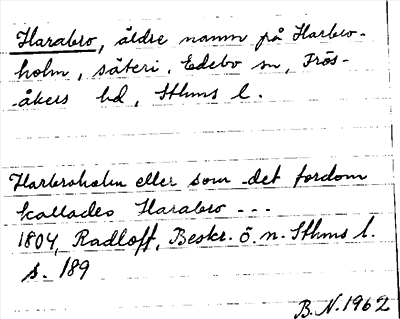 Harabro, äldre namn på Harbro-
holm, säteri, Edebo sn, Frös-
åkers hd, Sthms l.
Harbroholm eller som det fordom
kallades Harabro ---
1804, Radloff, Beskr. ö. n. Sthms l.
s. 189
B.N. 1962